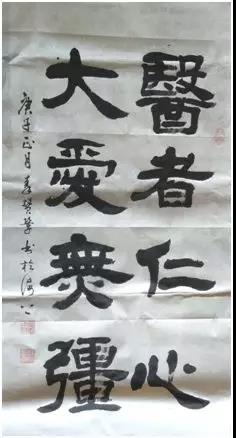 醫者仁心
大愛無疆
庚子正月